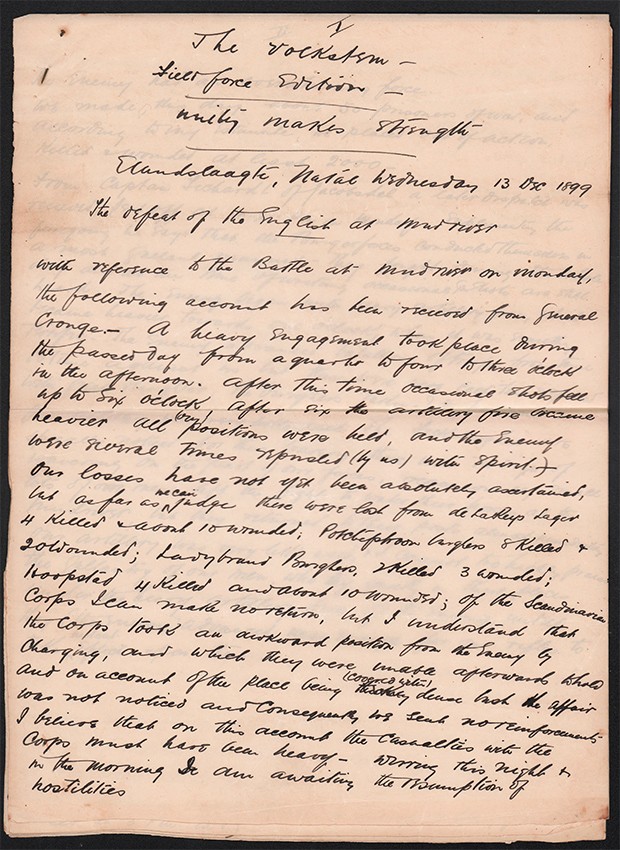 V
The Volkstem –
Field force Edition –
unity makes strength
Elandslaagte, Natal Wednesday 13 Dec 1899
The defeat of the English at Mudriver
with reference to the Battle at Mudriver on Monday,
the following account has been received from General
Cronge. – A heavy Engagement took place during
the passed day from a quarter to four to three o'clock
in the afternoon. After this time occasional shots fell
up to six o'clock, after six the artillery fire became
heavier all (our) positions were held, and the Enemy
were several times repulsed (by us) with spirit. –
Our losses have not yet been absolutely ascertained,
but as far as we can judge there were lost from de la Reys Lager
4 Killed & about 10 wounded; Potchefstroom burghers 8 Killed &
20 Wounded; Ladybrand Burghers, 2 Killed 3 wounded;
Hoopstad 4 Killed and about 10 wounded; of the Scandinavian
Corps I can make no return, but I understand that
the Corps took an awkward position from the Enemy by
Charging, and which they were unable afterwards to hold
and on account of the place being (covered with) dense bush the affair
was not noticed and Consequently we sent no reinforcements
I believe that on this account the Casualties with the
Corps must have been heavy – during this night &
in the morning I am awaiting the resumption of
hostilities